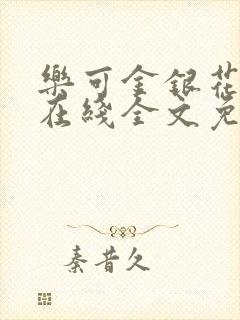 樂可金銀花
在綫全文免
秦昔久